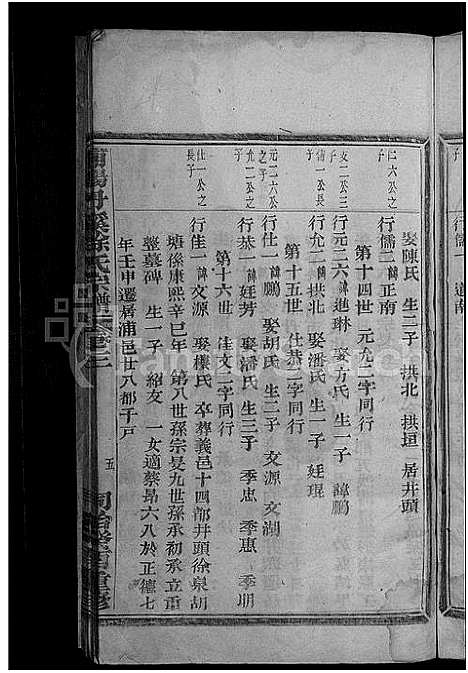 娶陳氏 生二子 拱北 拱垣 居井頭
仁六公之子
行儒二諱正南
第十四世 元允二字同行
文二公三子
行元二六諱進琳 娶方氏 生一子 諱鵬
儒一公長子
行允二諱拱北 娶潘氏 生一子 廷琨
第十五世 仕恭二字同行
元二六公之子
行仕一諱鵬 娶胡氏 生二子 文源 文湖
允二公之子
行恭一諱廷芳 娶潘氏 生三子 季忠 季惠 季明
第十六世 佳文二字同行
仕一公之長子
行佳一諱文源 娶樓氏 卒葬義邑十四都井頭徐泉胡
塘後康熙辛巳年 第八世孫宗旻九世孫承初承立重
整墓碑 生一子 紹文 一女適蔡昂六八於正德七
年壬申遷居浦邑廿八都千戶
浦陽丹溪徐氏宗譜 卷之二
五
同治癸酉重修